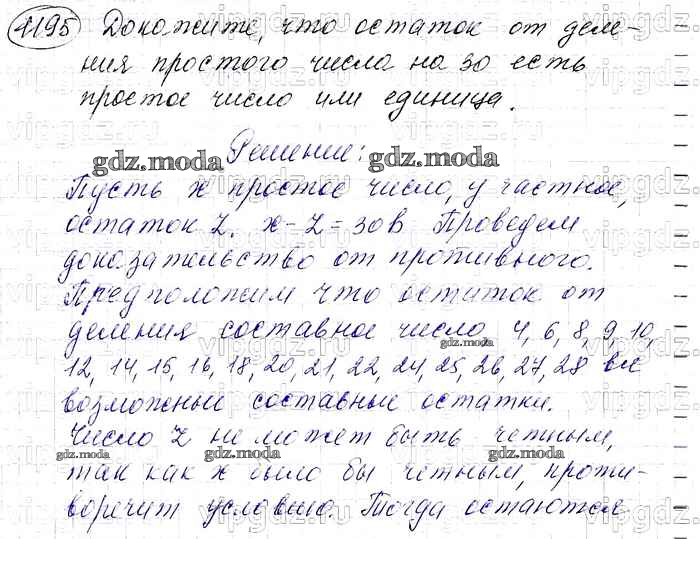 1195 Докажите, что остаток от деле-
ния простого числа на 30 есть
простое число или единица.
Решение:
Пусть x простое число, y частное,
остаток Z. x - Z = 30B Проведем
доказательство от противного.
Предположим что остаток от
деления составное число 4, 6, 8, 9, 10,
12, 14, 15, 16, 18, 20, 21, 22, 24, 25, 26, 27, 28 все
возможные составные остатки.
Число Z не может быть четным,
так как x было бы четным, проти-
воречит условию. Тогда остаются
gdz.moda
gdz.moda
gdz.moda
gdz.moda
gdz.moda
gdz.moda
gdz.moda